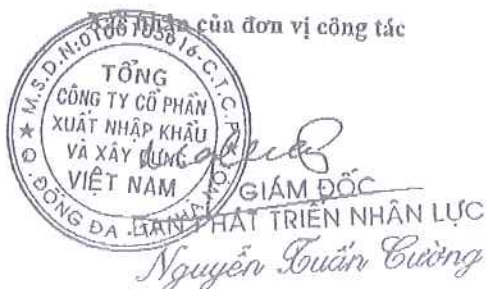 Xác nhận của đơn vị công tác
M.S.D.N:0100105616-C.T.C.P
TỔNG
CÔNG TY CỔ PHẦN
XUẤT NHẬP KHẨU
VÀ XÂY DỰNG
VIỆT NAM
Q. ĐỐNG ĐA
GIÁM ĐỐC
BAN PHÁT TRIỂN NHÂN LỰC
Nguyễn Xuân Cường